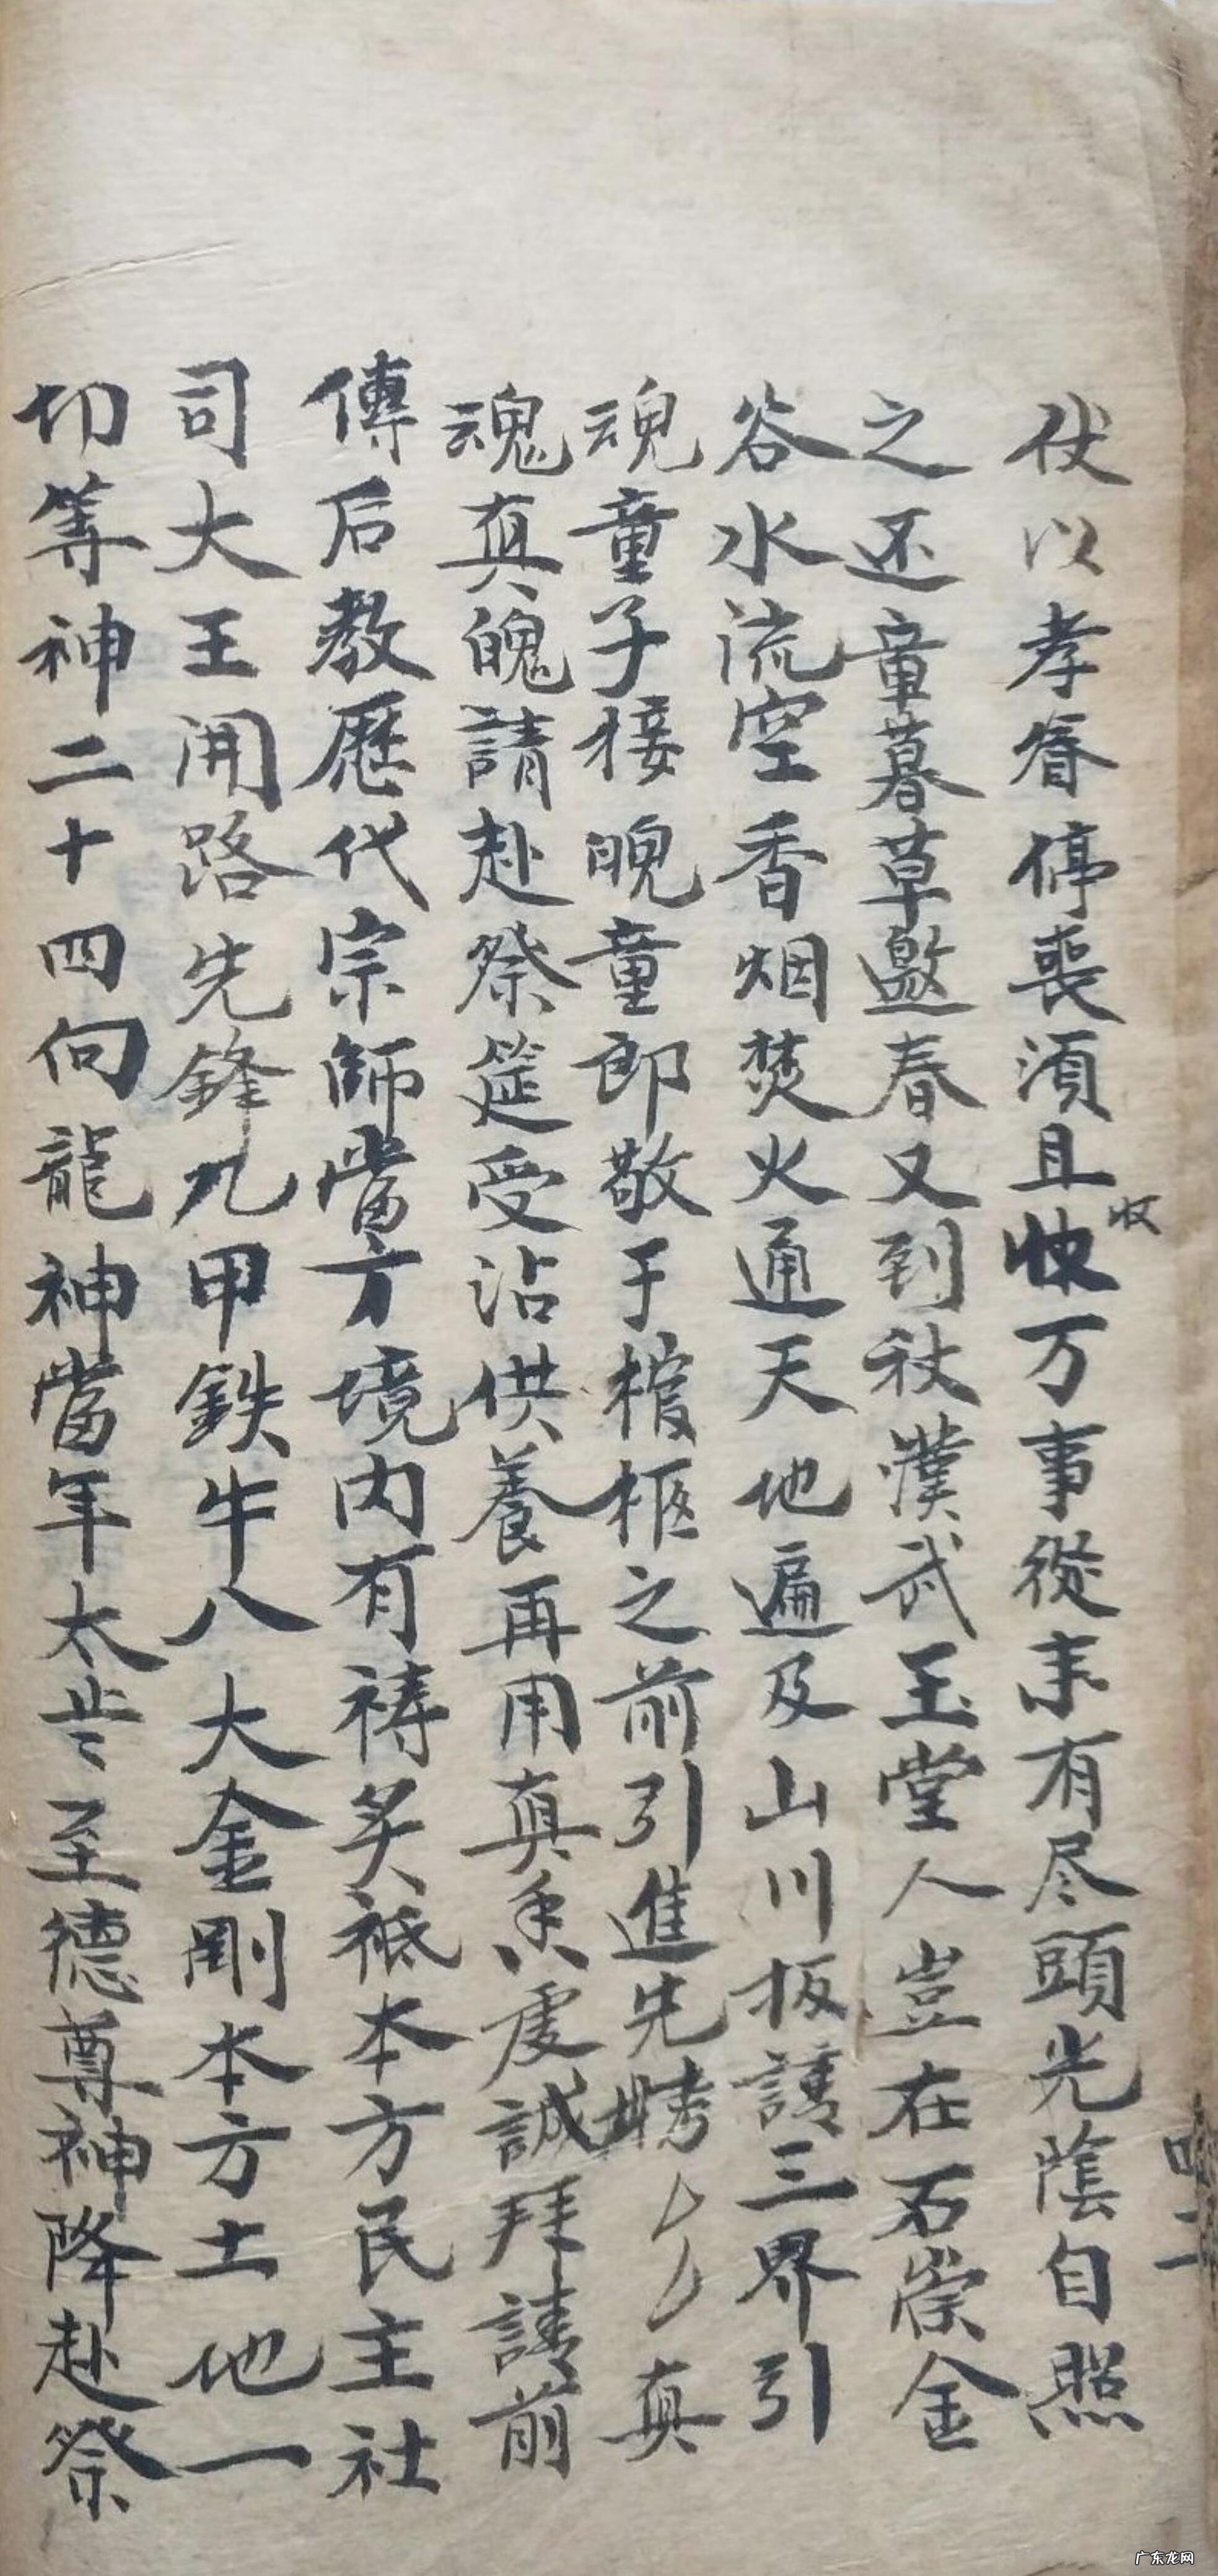 伏以孝眷停喪須且收万事從来有尽頭光陰自照
收
之还章暮草邀春又到秋漢武玉堂人豈在石崇金
谷水流空香烟焚火通天地遍及山川扳請三界引
魂童子接魄童郎敬于棺柩之前引進先真
魂真魄請赴祭筵受沾供養再用真香虔誠拜請前
傳后教歷代宗師當方境内有禱炙祗本方民主社
司大王開路先鋒九甲鉄牛八大金剛本方土地一
切等神二十四向龍神當年太歲至德尊神降赴祭
广东龙网